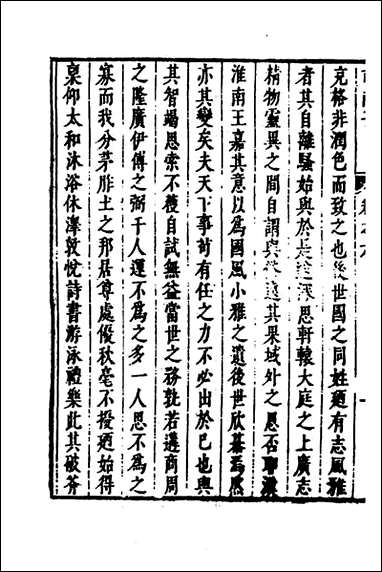 克格非潤色而致之也後世國之同姓廼有志風雅
者其自離騷始與於是遊深思軒轅大庭之上廣志
精物靈異之間自謂與其果域外之思否耶漢
淮南王嘉其意以爲國風小雅之遺後世欣慕焉然
亦其變矣夫天下事苟有任之力不必出於已也與
其智竭思索不獲自試無益當世之務孰若遘商周
之隆廣伊傅之弼千人運不爲之多一人思不爲之
寡而我分茅胙土之邦居尊處優秋毫不擾廼始得
稟仰太和沐浴休澤敦悅詩書游泳禮樂此其破斧